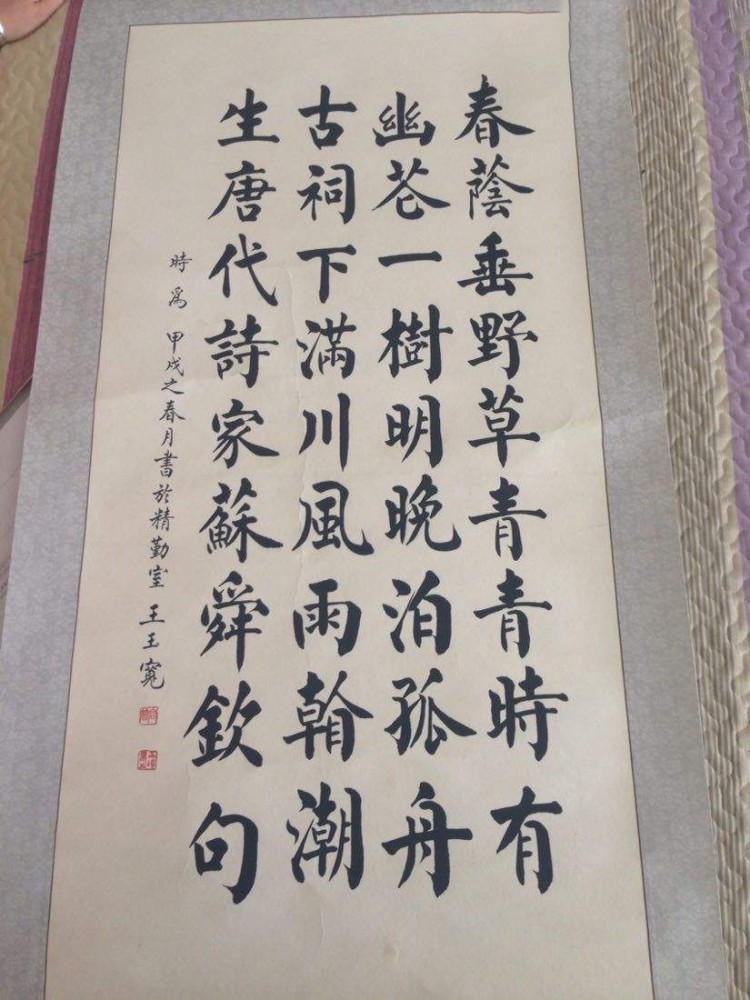 春蔭垂野草青青時有
幽花一樹明晚泊孤舟
古祠下滿川風雨翰潮
生唐代詩家蘇舜欽句
時爲 甲戌之春月書於精勤室 王玉寬